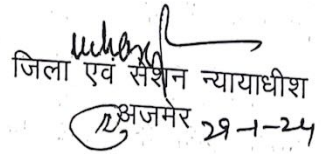 जिला एवं सेशन न्यायाधीश
अजमेर 29-1-24